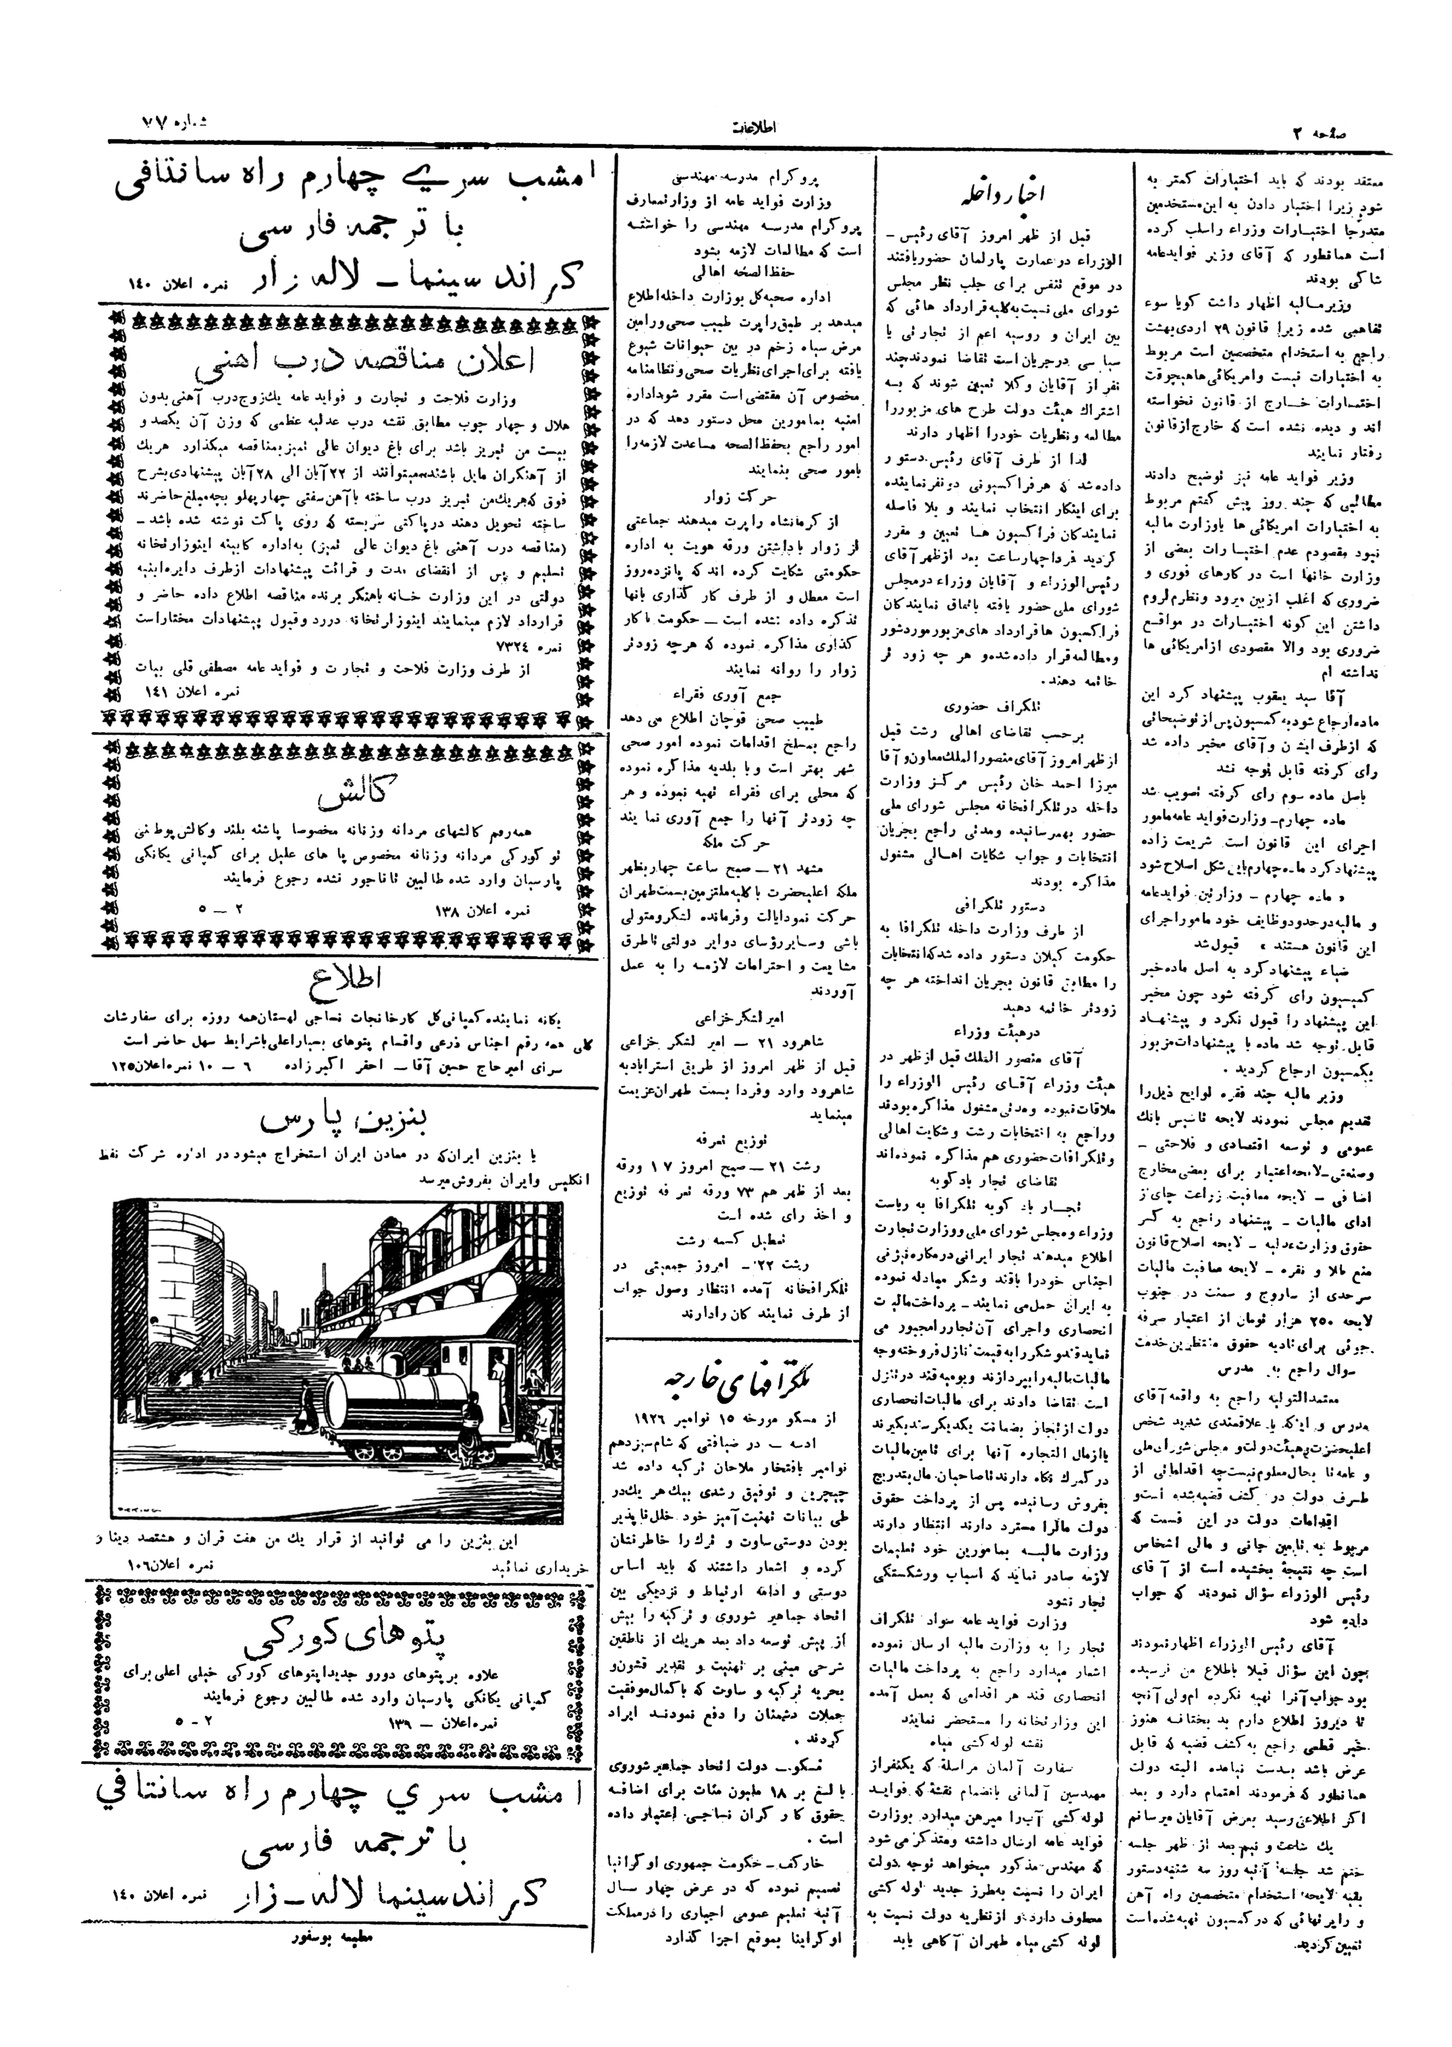 صفحه ۲
اطلاعات
شماره ۷۷
معتقد بودند که باید اختیارات کمتر به
شود زیرا اختیار دادن به این مستخدمین
متدرجا اختیارات وزراء را سلب کرده
است همانطور که آقای وزیر فوایدعامه
شاکی بودند
وزیر مالیه اظهار داشت گویا سوء
تفاهمی شده زیرا قانون ۲۹ اردی بهشت
راجع به استخدام متخصصین است مربوط
به اختیارات نیست وامریکائی ها هیچوقت
اختیارات خارج از قانون نخواسته
اند و دیده نشده است که خارج از قانون
رفتار نمایند
وزیر فواید عامه نیز توضیح دادند
مطالبی که چند روز پیش گفتم مربوط
به اختیارات امریکائی ها باوزارت مالیه
نبود مقصودم عدم اختیارات بعضی از
وزارت خانها است در کارهای فوری و
ضروری که اغلب ازبین میرود ونظرم لزوم
داشتن این گونه اختیارات در مواقع
ضروری بود والا مقصودی ازامریکائی ها
نداشته ام
آقا سید یعقوب پیشنهاد کرد این
ماده ارجاع شود به کمیسیون پس از توضیحاتی
که ازطرف ایشان وآقای مخبر داده شد
رای گرفته قابل توجه نشد
باصل ماده سوم رای گرفته تصویب شد
ماده چهارم – وزارت فواید عامه مامور
اجرای این قانون است. شریعت زاده
پیشنهاد کرد ماده چهارم باین شکل اصلاح شود
« ماده چهارم – وزارتین فوایدعامه
و مالیه در حدود وظایف خود مامور اجرای
این قانون هستند » قبول شد
ضیاء پیشنهاد کرد به اصل ماده خبر
کمیسیون رای گرفته شود چون مخبر
این پیشنهاد را قبول نکرد و پیشنهاد
قابل توجه شد ماده با پیشنهادات مزبور
بکمسیون ارجاع گردید .
وزیر مالیه چند فقره لوایح ذیل را
تقدیم مجلس نمودند لایحه تاسیس بانك
عمومی و توسعه اقتصادی و فلاحتی –
وصنعتی – لایحه اعتبار برای بعضی مخارج
اضافی – لایحه معافیت زراعت چای از
ادای مالیات – پیشنهاد راجع به کسر
حقوق وزارت عدلیه – لایحه اصلاح قانون
منع طلا و نقره – لایحه معافیت مالیات
سرحدی از ساروج و سمنت در جنوب
لایحه ۲۵۰ هزار تومان از اعتبار صرفه
جوئی برای تادیه حقوق منتظرین خدمت
سوال راجع به مدرس
معتمدالتولیه راجع به واقعه آقای
مدرس و اینکه با علاقمندی شدید شخص
اعلیحضرت وهیئت دولت و مجلس شورای ملی
و عامه تا بحال معلوم نیست چه اقداماتی از
طرف دولت در کشف قضیه شده است و
اقدامات دولت در این قسمت که
مربوط به تامین جانی و مالی اشخاص
است چه نتیجه بخشیده است از آقای
رئیس الوزراء سؤال نمودند که جواب
داده شود
آقای رئیس الوزراء اظهار نمودند
چون این سؤال قبلا باطلاع من نرسیده
بود جواب آنرا تهیه نکرده ام ولی آنچه
تا دیروز اطلاع دارم بد بختانه هنوز
خبر قطعی راجع به کشف قضیه که قابل
عرض باشد بدست نیامده البته دولت
همانطور که فرمودند اهتمام دارد و بعد
اگر اطلاعی رسید بعرض آقایان میرسانم
یك ساعت و نیم بعد از ظهر جلسه
ختم شد جلسه آتیه روز سه شنبه دستور
بقیه لایحه استخدام متخصصین راه آهن
و راپرتهائی که در کمسیون تهیه شده است
تعیین گردید.
اخبار داخله
قبل از ظهر امروز آقای رئیس –
الوزراء در عمارت پارلمان حضور یافتند
در موقع تنفس برای جلب نظر مجلس
شورای ملی نسبت به کلیه قرارداد هائی که
بین ایران و روسیه اعم از تجارتی یا
سیاسی در جریان است تقاضا نمودند چند
نفر از آقایان وکلا تعیین شوند که به
اشتراك هیئت دولت طرح های مزبور را
مطالعه و نظریات خود را اظهار دارند
لذا از طرف آقای رئیس دستور
داده شد که هر فراکسیونی دو نفر نماینده
برای اینکار انتخاب نمایند و بلا فاصله
نمایندگان فراکسیون ها تعیین و مقرر
گردید فردا چهار ساعت بعد از ظهر آقای
رئیس الوزراء و آقایان وزراء در مجلس
شورای ملی حضور یافته باتفاق نمایندگان
فراکسیون ها قرارداد های مزبور مورد شور
و مطالعه قرار داده شده و هر چه زود تر
خاتمه دهند.
تلگراف حضوری
برحسب تقاضای اهالی رشت قبل
از ظهر امروز آقای منصورالملك معاون و آقا
میرزا احمد خان رئیس مرکز وزارت
داخله در تلگرافخانه مجلس شورای ملی
حضور بهمرسانیده ومدتی راجع بجریان
انتخابات و جواب شکایات اهالی مشغول
مذاکره بودند
دستور تلگرافی
از طرف وزارت داخله تلگرافا به
حکومت گیلان دستور داده شد که انتخابات
را مطابق قانون بجریان انداخته هر چه
زودتر خاتمه دهید
در هیئت وزراء
آقای منصور الملك قبل از ظهر در
هیئت وزراء آقای رئیس الوزراء را
ملاقات نموده ومدتی مشغول مذاکره بودند
و راجع به انتخابات رشت و شکایت اهالی
و تلگرافات حضوری هم مذاکره نموده اند
تقاضای تجار بادکوبه
تجار باد کوبه تلگرافا به ریاست
وزراء و مجلس شورای ملی ووزارت تجارت
اطلاع میدهند تجار ایرانی در مکاره نیژنی
اجناس خود را باقند وشکر مبادله نموده
به ایران حمل می نمایند – پرداخت مالیات
انحصاری واجرای آن تجار را مجبور می
نماید قند و شکر را به قیمت نازل فروخته وجه
مالیات مالیه را بپردازند و یومیه قند در تنزل
است تقاضا دارند برای مالیات انحصاری
دولت از تجار بضمانت یکدیگر سند بگیرند
یا از مال التجاره آنها برای تامین مالیات
در گمرك نگاه دارند تا صاحبان مال بتدریج
بفروش رسانیده پس از پرداخت حقوق
دولت مال را مسترد دارند انتظار دارند
وزارت مالیه بمامورین خود تعلیمات
لازمه صادر نماید که اسباب ورشکستگی
تجار نشود
وزارت فواید عامه سواد تلگراف
تجار را به وزارت مالیه ارسال نموده
اشعار میدارد راجع به پرداخت مالیات
انحصاری قند هر اقدامی که بعمل آمده
این وزارتخانه را مستحضر نمایند
نقشه لوله کشی میاه
سفارت آلمان مراسله که یکنفر از
مهندسین آلمانی بانضمام نقشه که فواید
لوله کشی آب را مبرهن میدارد بوزارت
فواید عامه ارسال داشته ومتذکر می شود
که مهندس مذکور میخواهد توجه دولت
ایران را نسبت به طرز جدید لوله کشی
معطوف دارد و از نظریه دولت نسبت به
لوله کشی میاه طهران آگاهی یابد
پروگرام مدرسه مهندسی
وزارت فواید عامه از وزارتمعارف
پروگرام مدرسه مهندسی را خواسته
است که مطالعات لازمه بشود
حفظ الصحه اهالی
اداره صحیه کل بوزارت داخله اطلاع
میدهد بر طبق راپرت طبیب صحی ورامین
مرض سیاه زخم در بین حیوانات شیوع
یافته برای اجرای نظریات صحی و نظامنامه
مخصوص آن مقتضی است مقرر شود اداره
امنیه بمامورین محل دستور دهد که در
امور راجع بحفظ الصحه مساعدت لازمه را
بامور صحی بنمایند
حرکت زوار
از کرمانشاه راپرت میدهند جماعتی
از زوار با داشتن ورقه هویت به اداره
حکومتی شکایت کرده اند که پانزده روز
است معطل و از طرف کار گذاری بآنها
تذکره داده نشده است – حکومت با کار
گذاری مذاکره نموده که هر چه زودتر
زوار را روانه نمایند
جمع آوری فقراء
طبیب صحی قوچان اطلاع می دهد
راجع بمسلخ اقدامات نموده امور صحی
شهر بهتر است و با بلدیه مذاکره نموده
که محلی برای فقراء تهیه نموده و هر
چه زودتر آنها را جمع آوری نمایند
حرکت ملکه
مشهد ۲۱ – صبح ساعت چهار بظهر
ملکه اعلیحضرت با کلیه ملتزمین بسمت طهران
حرکت نمود ایالت و فرمانده لشگر و متولی
باشی و سایر رؤسای دوایر دولتی تا طرق
مشایعت و احترامات لازمه را به عمل
آوردند
امیر لشگر خزاعی
شاهرود ۲۱ – امیر لشگر خزاعی
قبل از ظهر امروز از طریق استراباد به
شاهرود وارد و فردا بسمت طهران عزیمت
مینماید
توزیع تعرفه
رشت ۲۱ – صبح امروز ۱۷ ورقه
بعد از ظهر هم ۷۳ ورقه تعرفه توزیع
و اخذ رای شده است
تعطیل کسبه رشت
رشت ۲۲ – امروز جمعیتی در
تلگرافخانه آمده انتظار وصول جواب
از طرف نمایندگان را دارند
تلگرافهای خارجه
از مسکو مورخه ۱۵ نوامبر ۱۹۲۶
ادسه – در ضیافتی که شام سیزدهم
نوامبر بافتخار ملاحان ترکیه داده شد
چیچرین و توفیق رشدی بیك هر یك در
طی بیانات تهنیت آمیز خود خلل ناپذیر
بودن دوستی ساوت و ترك را خاطر نشان
کرده و اشعار داشتند که باید اساس
دوستی و ادامه ارتباط و نزدیکی بین
اتحاد جماهیر شوروی و ترکیه را بیش
از پیش توسعه داد بعد هر یك از ناطقین
شرحی مبنی بر تهنیت و تقدیر قشون و
بحریه ترکیه و ساوت که با کمال موفقیت
حملات دشمنان را دفع نمودند ایراد
کردند .
مسکو – دولت اتحاد جماهیر شوروی
بالغ بر ۱۸ ملیون منات برای اضافه
حقوق کارگران نساجی اعتبار داده
است .
خارکف – حکومت جمهوری اوکرانیا
تصمیم نموده که در عرض چهار سال
آتیه تعلیم عمومی اجباری را در مملکت
اوکراینا بموقع اجرا گذارد
امشب سری چهارم راه سانتافی
با ترجمه فارسی
گراند سینما – لاله زار نمره اعلان ۱۴۰
اعلان مناقصه درب آهنی
وزارت فلاحت و تجارت و فواید عامه یك زوج درب آهنی بدون
هلال و چهار چوب مطابق نقشه درب عدلیه عظمی که وزن آن یکصد و
بیست من تبریز باشد برای باغ دیوان عالی تمیز بمناقصه میگذارد هر یك
از آهنگران مایل باشند میتوانند از ۲۲ آبان الی ۲۸ آبان پیشنهادی بشرح
فوق که هر یك من تبریز درب ساخته با آهن سفتی چهار پهلو بچه مبلغ حاضرند
ساخته تحویل دهند در پاکتی سربسته که روی پاکت نوشته شده باشد –
(مناقصه درب آهنی باغ دیوان عالی تمیز) به اداره کابینه اینوزارتخانه
تسلیم و پس از انقضای مدت و قرائت پیشنهادات از طرف دایره ابنیه
دولتی در این وزارت خانه باهنگر برنده مناقصه اطلاع داده حاضر و
قرارداد لازم مینمایند اینوزارتخانه در رد و قبول پیشنهادات مختار است
نمره ۷۳۲۴
از طرف وزارت فلاحت و تجارت و فواید عامه مصطفی قلی بیات
نمره اعلان ۱۴۱
گالش
همه رقم گالشهای مردانه و زنانه مخصوصا پاشنه بلند و گالش پوطنی
تو کورکی مردانه و زنانه مخصوص پا های علیل برای کمپانی یگانگی
پارسیان وارد شده طالبین تا تاجور نشده رجوع فرمایند
نمره اعلان ۱۳۸ ۲ – ۵
اطلاع
یگانه نماینده کمپانی کل کارخانجات نساجی لهستان همه روزه برای سفارشات
کلی همه رقم اجناس ذرعی و اقسام پتوهای بسیار اعلی با شرایط سهل حاضر است
سرای امیر حاج حسین آقا – احقر اکبر زاده ۶ – ۱۰ نمره اعلان ۱۲۵
بنزین پارس
یا بنزین ایران که در معادن ایران استخراج میشود در اداره شرکت نفط
انگلیس و ایران بفروش میرسد
این بنزین را می توانید از قرار یك من هفت قران و هشتصد دینار
خریداری نمائید نمره اعلان ۱۰۶
پتوهای کورکی
علاوه بر پتوهای دورو جدیدا پتوهای کورکی خیلی اعلی برای
کمپانی یگانگی پارسیان وارد شده طالبین رجوع فرمایند
نمره اعلان – ۱۳۹ ۲ – ۵
امشب سری چهارم راه سانتافی
با ترجمه فارسی
گراند سینما لاله – زار نمره اعلان ۱۴۰
مطبعه بوسفور